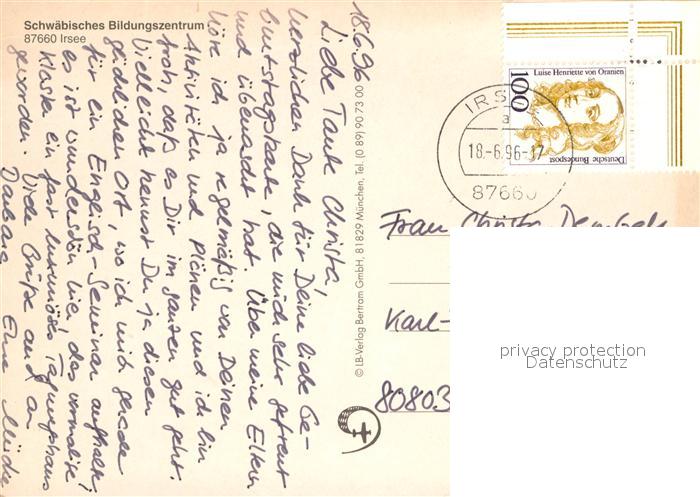 Schwäbisches Bildungszentrum
87660 Irsee
18.6.96
Liebe Tante Christa,
herzlichen Dank für Deine liebe Ge-
burtstagskarte, die mich sehr gefreut
und überrascht hat. Über meine Eltern
höre ich ja regelmäßig von Deinen
Aktivitäten und Plänen und ich bin
froh, daß es Dir im ganzen gut geht.
Vielleicht kennst Du ja diesen
gedlichen Ort, wo ich mich gerade
für ein Englisch-Seminar aufhalte;
es ist wunderschön wie das ehemalige
Kloster ein fast luxuriöses Tagungshaus
geworden. Viele Grüße auch an
Deine
© LB-Verlag Bertram GmbH, 81829 München, Tel. (0 89) 90 73 00
Luise Henriette von Oranien
100
Deutsche Bundespost
IRSEE
a
18.-6.96-17
87660
Frau Christa
Karl-
80803
privacy protection
Datenschutz